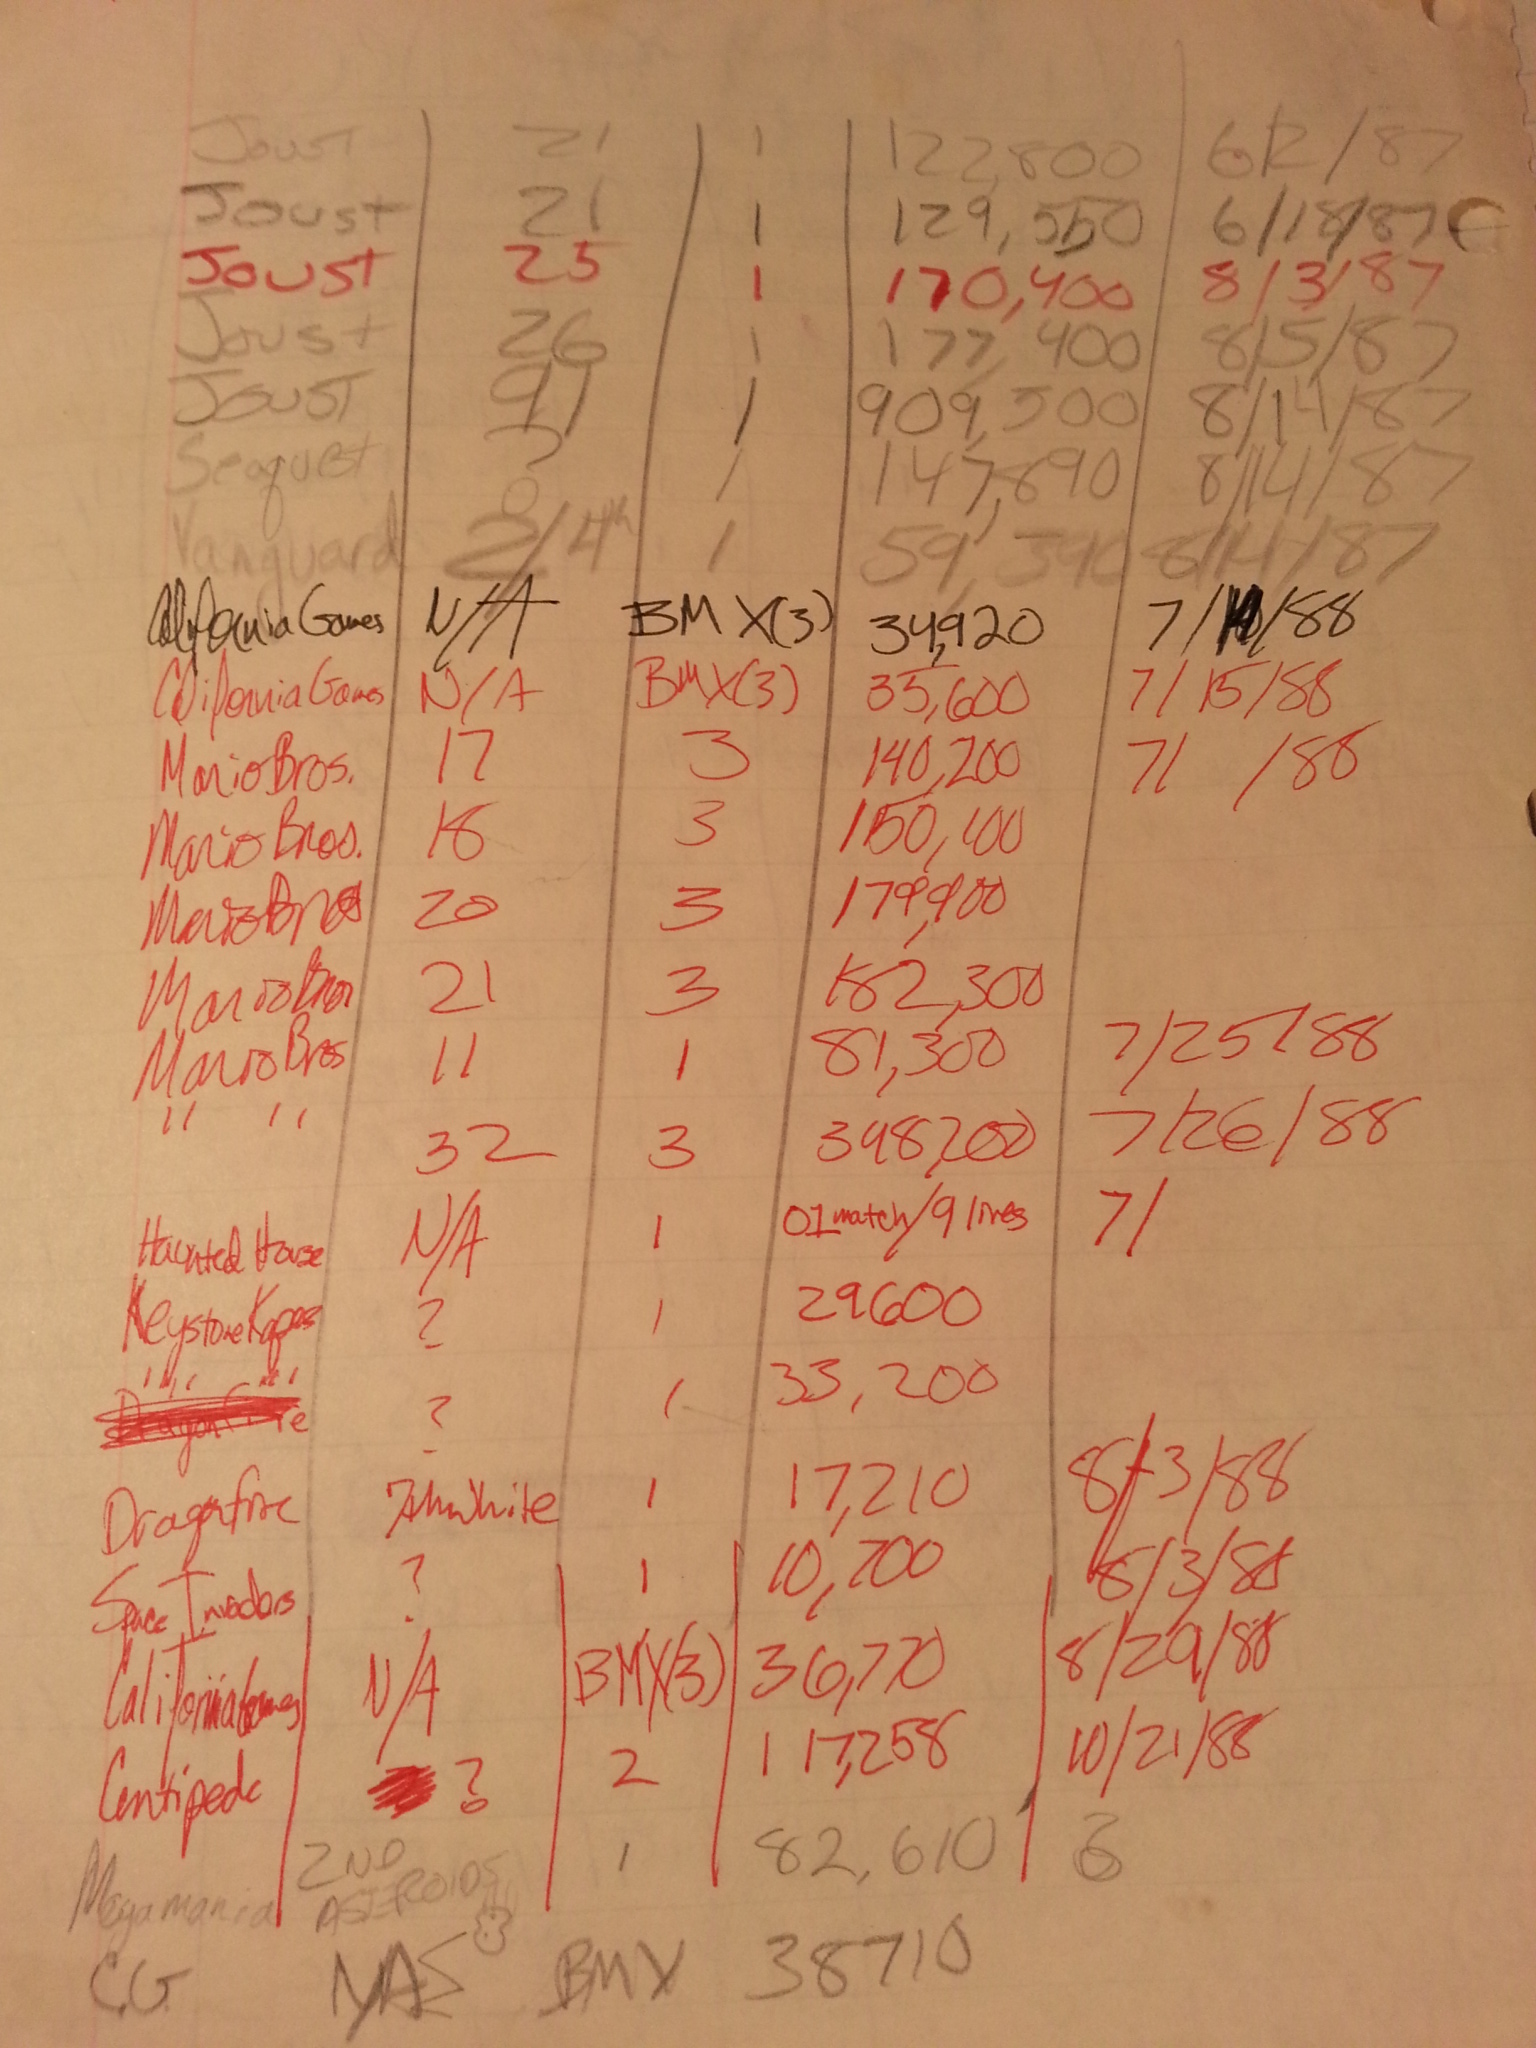 Joust 21 1 122,800 6/2/87
Joust 21 1 129,550 6/18/87
Joust 25 1 170,400 8/3/87
Joust 26 1 177,400 8/5/87
Joust 91 1 909,500 8/14/87
Seaquest ? 1 147,890 8/14/87
Vanguard 2/4th 1 59,390 8/14/87
California Games N/A BMX(3) 34,920 7/ /88
California Games N/A BMX(3) 35,600 7/15/88
Mario Bros. 17 3 140,200 7/ /88
Mario Bros. 18 3 150,100
Mario Bros 20 3 179,900
Mario Bros 21 3 182,300
Mario Bros 11 1 81,300 7/25/88
" " 32 3 398,200 7/26/88
Haunted House N/A 1 01 match/9 lives 7/
Keystone Kapers ? 1 29600
" " " " ? 1 33,200
Dragonfire
Dragonfire 7th White 1 17,210 8/3/88
Space Invaders ? 1 10,700 8/3/88
California Games N/A BMX(3) 36,770 8/29/88
Centipede ? 2 117,258 10/21/88
Megamania 2ND ASTEROIDS 1 82,610
C.G N/A BMX 38710